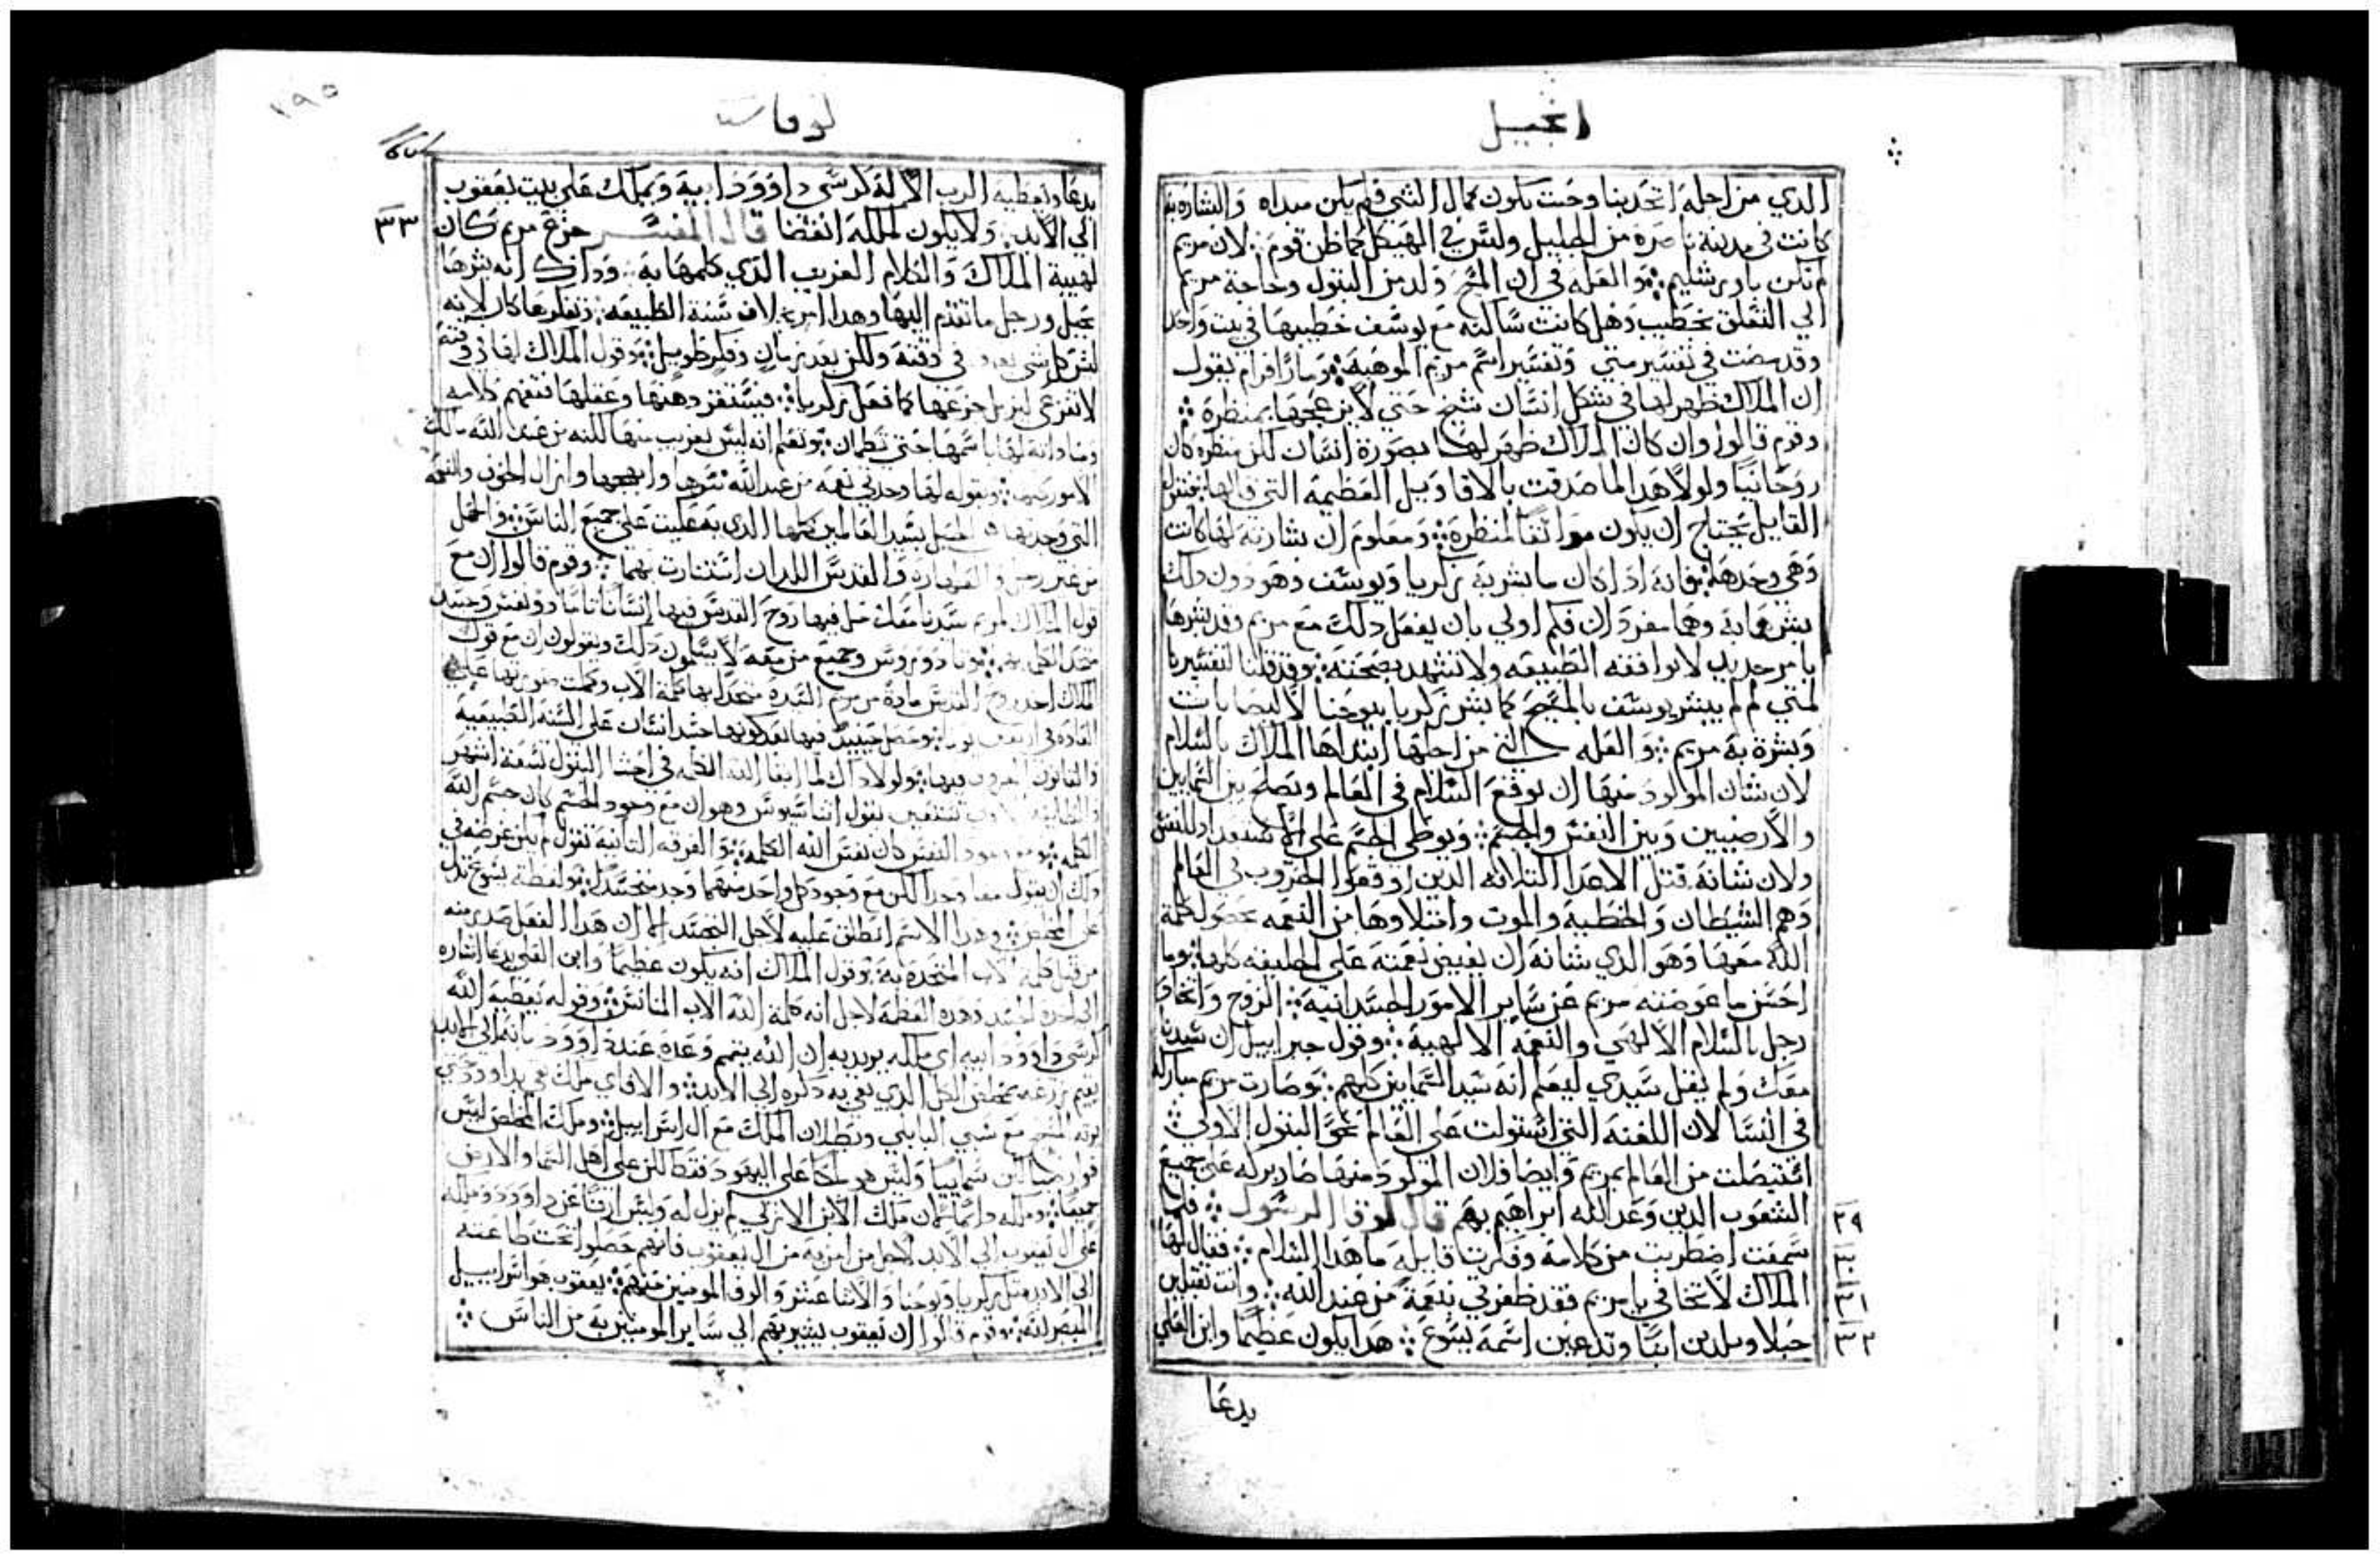 انجيل
الدي من اجله اتحد بنا وحيت يكون كمال الشي فلم يكن مبداه والبشاره
كانت في مدينة ناصرة من الجليل وليس في الهيكل كما ظن قوم ⁘ لان مريم
لم تكن باورشليم ⁘ والعله في ان المسيح ولد من البتول وحاجة مريم
الي التعلق بخطيب وهل كانت ساكنه مع يوسف خطيبها في بيت واحد
وقد مضت في تفسير متي وتفسير اسم مريم الموهبة ⁘ ومار افرام يقول
ان الملاك ظهر لها في شكل انسان شيخ حتي لا يزعجها بمنظرة ⁘
وقوم قالوا وان كان الملاك ظهر لها بصورة انسان لكن منظره كان
روحانيا ولولا هدا لما صدقت بالاقاويل العظيمة التي قالها
القايل يحتاج ان يكون موافقا لمنظرة ⁘ ومعلوم ان بشارته لها كانت
وهي وحدها ⁘ فانه ادا كان ما بشر به زكريا ويوسف وهو دون دلك
بشرهما به وهما مفردان فكم اولي بان يفعل دلك مع مريم وقد بشرها
بامر جديد لا توافقه الطبيعه ولا تشهد بصحته ⁘ وقد قلنا لتفسيرنا
لمتي لم لم يبشر يوسف بالمسيح كما بشر زكريا بيوحنا لاليصابات
وبشرة به مريم ⁘ والعله التي من اجلها ابتداها الملاك بالسلام
لان شان المولود منها ان يوقع السلام في العالم ويصلح بين السمايين
والارضيين وبين النفس والجسم ⁘ ويوطي الجسم علي
ولان شانه قتل الاعدا التلاته الدين اوقعوا الحروب في العالم
وهم الشيطان والخطيه والموت وامتلاوها من النعمه بحصول كلمة
الله معها وهو الدي شانه ان يفيض نعمته علي الخليفه كلها ⁘ وما
احسن ما عوضته مريم عن ساير الامور الجسدانيه ⁘ الزوج واتحاد
رجل بالسلام الالهي والنعمة الالهية ⁘ وقول جبراييل ان سيدنا
معك ولم يقل سيدي ليعلم انه سيد السمايين كلهم ⁘ وصارت مريم مباركة
في النسا لان اللعنة التي استولت علي العالم نحو البتول الاولي ⁘
استيصلت من العالم بمريم وايضا فلان المولود منها صار بركه علي جميع
الشعوب الدين وعد الله ابراهيم بهم قال لوقا الرسول ⁘ فلما ٢٩
سمعت اضطربت من كلامة وفكرت قايلة ما هدا السلام ⁘ فقال لها ٣٠
الملاك لا تخافي يا مريم فقد ظفرتي بنعمة من عند الله ⁘ وانت تقبلين ٣١
حبلا وتلدين ابنا وتدعين اسمه يسوع ⁘ هدا يكون عظيما وابن العلي ٣٢
يدعا
١٩٥
لوقا
يدعا ويعطيه الرب الاله كرسي داوود ابيه ويملك علي بيت يعقوب
الي الابد ⁘ ولا يكون لملكه انقضا قال المفسر جزع مريم كان ٣٣
لهيبة الملاك والكلام الغريب الدي كلمها به ⁘ وداك انه بشرها
بحبل ورجل ما تقدم اليها وهدا امر بخلاف سنة الطبيعه ⁘ وتفكرها كان لانه
ليس كل شي في دفته ولكن بعد زمان وفكر طويل ⁘ وقول الملاك لها
لا تفزعي ليزيل جزعها كما فعل بزكريا ⁘ فيستقر دهنها وعقلها فتفهم كلامه
ومناداته لها باسمها حتي تطمان ⁘ وتعلم انه ليس بغريب منها لكنه من عند الله مالك
الامور ⁘ وبقوله لها وجدتي نعمه من عند الله سرها وابهجها وازال الحزن والنعمة
التي وجدتها الحبل بسيد العالمين كلها الدي به عليت علي جميع الناس ⁘ والحبل
من غير والطهارة والقدس اللدان استنارت بهما ⁘ وقوم قالوا ان مع
قول الملاك لمريم سيدنا معك حل فيها روح القدس فيها انسانا تاما دو نفس وجسد
وجميع من معه لا يسلمون دلك ويقولون ان مع قول
الملاك احد روح القدس مادة من مريم كلمة الاب وكملت صورتها علي
وحصل حينيد فيها بعد كونها جسد انسان علي السنه الطبيعية
والقانون فيها ⁘ ولولا داك لما الله الكلمه في احشا البتول تسعة اشهر
والطايفة تقول وهو ان مع وجود الجسم كان جسم الله
الكلمه ⁘ ومع وجود النفس كان نفس الله الكلمه ⁘ والفرقه التانيه تقول لم يكن غرضه في
دلك ان يقول معا وجدا لكن مع وجود كل واحد منهما وجد متحسدا ⁘ ولفظة يسوع تدل
علي المخلص ⁘ وهدا الاسم انطلق عليه لاجل الجسد لما ان هدا الفعل صدر منه
من قبل كلمة الاب المتحدة به ⁘ وقول الملاك انه يكون عظيما وابن العلي يدعا اشاره
الي الجسد وهده العظمة لاجل انه كلمة الله الاب ⁘ وقوله يعطيه الله
كرسي داوود ابيه اي ملكه يريد به ان الله يتمم وعده عند داوود بانه الي الابد
يقيم زرعه بمخلص الكل الدي بقي به دكره الي الابد ⁘ والا فاي ملك بقي لداوود في
مع سبي البابلي وبطلان الملك مع ال اسراييل ⁘ وملك المخلص ليس
هو سماييا وليس هو ملكا علي اليهود فقط لكن علي اهل السما والارض
جميعا ⁘ وملكه دايما كان ملك الابن الازلي لم يزل له وليس ارثا عن داوود وملكه
علي ال يعقوب الي الابد لاجل من امن به من ال يعقوب فانهم حصلوا تحت طاعته
الي الابد متل زكريا ويوحنا والاتنا عشر والوف المومنين منهم ⁘ يعقوب هو اسراييل
المبصر لله ⁘ وقوم قالوا ان يعقوب يشير بهم الي ساير المومنين به من الناس ⁘